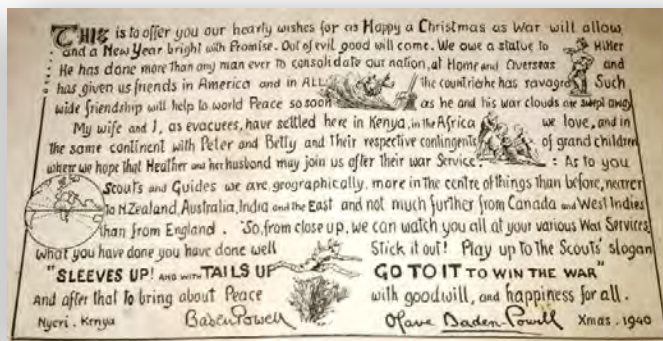 THIS is to offer you our hearty wishes for as Happy a Christmas as War will allow
and a New Year bright with Promise. Out of evil good will come. We owe a statue to Hitler
He has done more than any man ever to consolidate our nation, at Home and Overseas and
has given us friends in America and in ALL the countries he has ravaged Such
wide friendship will help to world Peace so soon as he and his war clouds are swept away
My wife and I, as evacuees, have settled here in Kenya, in the Africa we love, and in
the same continent with Peter and Betty and their respective contingents of grand children
where we hope that Heather and her husband may join us after their war Service. : As to you
Scouts and Guides we are, geographically, more in the centre of things than before, nearer
to N Zealand, Australia, India and the East and not much further from Canada and West Indies
than from England. So, from close up, we can watch you all at your various War Services,
What you have done you have done well Stick it out! Play up to the Scouts' slogan
"SLEEVES UP! AND WITH TAILS UP GO TO IT TO WIN THE WAR"
And after that to bring about Peace with goodwill, and happiness for all.
Nyeri. Kenya Baden Powell Olave Baden-Powell Xmas. 1940